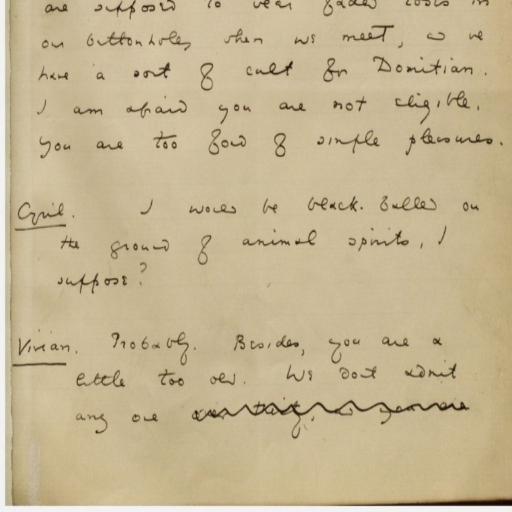 are supposed to wear faded roses in
our buttonholes when we meet, as we
have a sort of cult for Domitian.
I am afraid you are not eligible.
You are too fond of simple pleasures.
Cyril. I would be black-balled on
the ground of animal spirits, I
suppose?
Vivian. Probably. Besides, you are a
little too old. We dont admit
any one